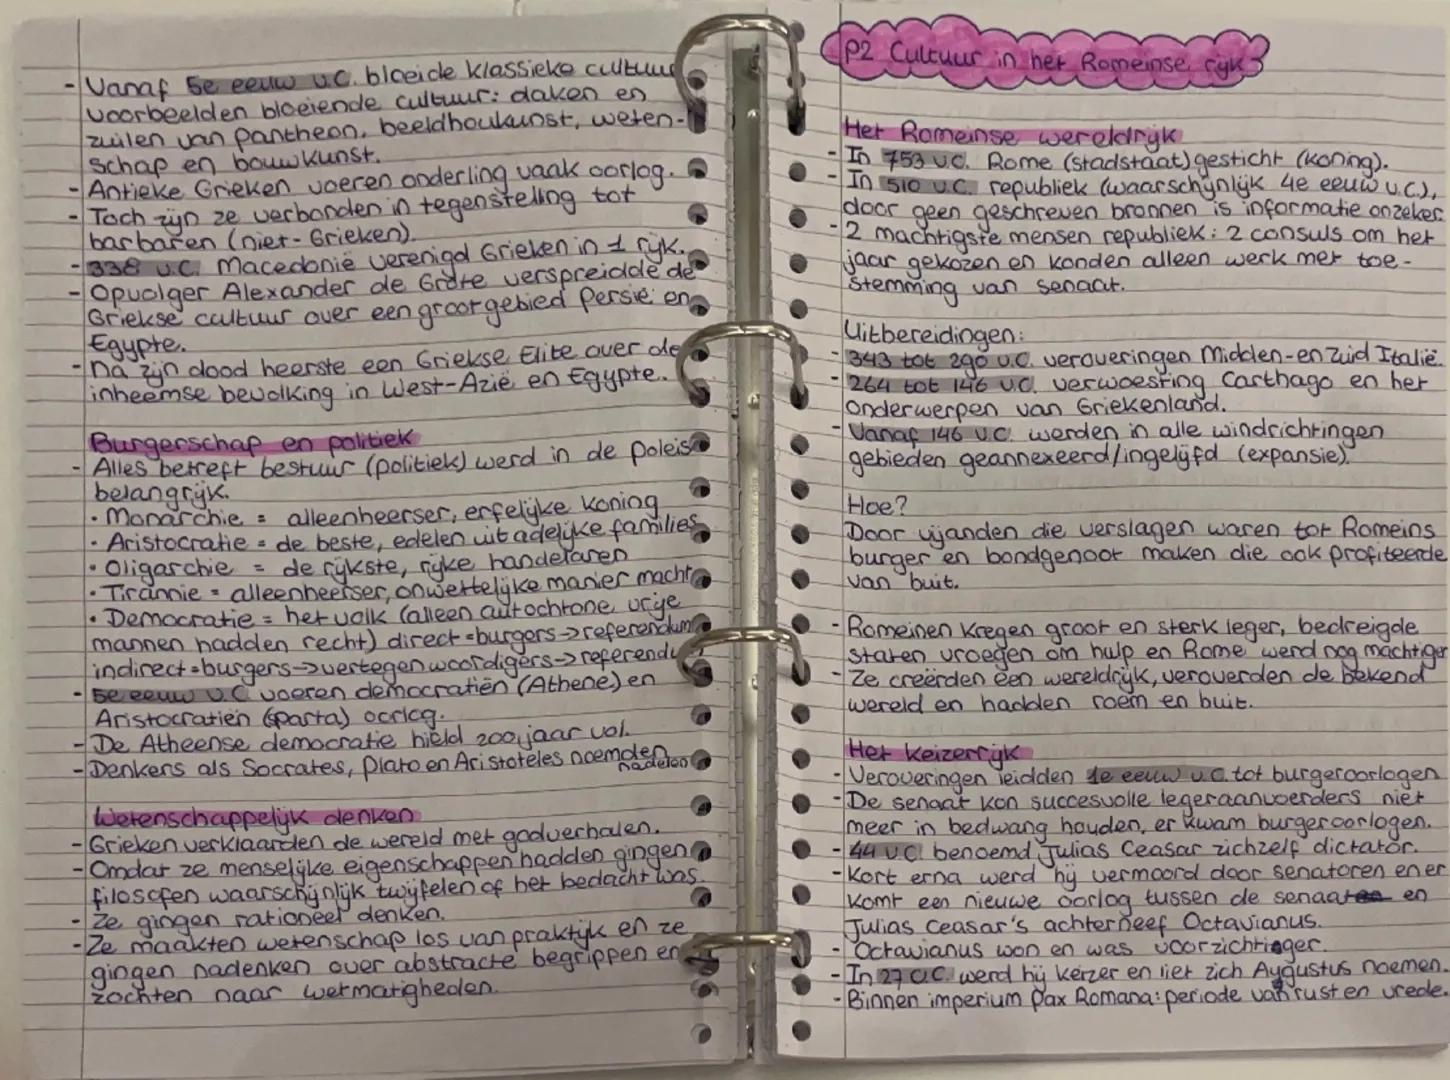 - Vanaf 5e eeuw v.C. bloeide klassieke cultuur
voorbeelden bloeiende cultuur: daken en
zuilen van pantheon, beeldhoukunst, weten-
schap en bouwkunst.
- Antieke Grieken voeren onderling vaak oorlog.
- Toch zijn ze verbonden in tegenstelling tot
barbaren (niet-Grieken).
- 338 v.C. Macedonië verenigd Grieken in 1 rijk.
- Opvolger Alexander de Grote verspreidde de
Griekse cultuur over een groot gebied Persië en
Egypte.
- na zijn dood heerste een Griekse Elite over de
inheemse bevolking in West-Azië en Egypte.
Burgerschap en politiek
- Alles betreft bestuur (politiek) werd in de poleis
belangrijk.
• Monarchie = alleenheerser, erfelijke koning
• Aristocratie = de beste, edelen uit adelijke families
• Oligarchie = de rijkste, rijke handelaren
• Tirannie = alleenheerser, onwettelijke manier macht
• Democratie = het volk (alleen autochtone vrije
mannen hadden recht) direct=burgers->referendum
indirect=burgers->vertegenwoordigers->referendu
- 5e eeuw v.C voeren democratiën (Athene) en
Aristocratiën (Sparta) oorlog.
- De Atheense democratie hield 200 jaar vol.
- Denkers als Socrates, Plato en Aristoteles noemden
nadelen
Wetenschappelijk denken
- Grieken verklaarden de wereld met godverhalen.
- Omdat ze menselijke eigenschappen hadden gingen
filosofen waarschijnlijk twijfelen of het bedacht was.
- Ze gingen rationeel denken.
- Ze maakten wetenschap los van praktijk en ze
gingen nadenken over abstracte begrippen en
zochten naar wetmatigheden.
P2 Cultuur in het Romeinse rijk
Het Romeinse wereldrijk
- In 753 v.C. Rome (stadstaat) gesticht (koning).
- In 510 v.C. republiek (waarschijnlijk 4e eeuw v.C),
door geen geschreven bronnen is informatie onzeker.
- 2 machtigste mensen republiek: 2 consuls om het
jaar gekozen en konden alleen werk met toe-
stemming van senaat.
Uitbereidingen:
- 343 tot 290 v.C. veroveringen Midden-en Zuid Italië.
- 264 tot 146 v.C. verwoesting Carthago en het
onderwerpen van Griekenland.
- Vanaf 146 v.C. werden in alle windrichtingen
gebieden geannexeerd/ingelijfd (expansie).
Hoe?
Door vijanden die verslagen waren tot Romeins
burger en bondgenoot maken die ook profiteerde
van buit.
- Romeinen kregen groot en sterk leger, bedreigde
staten vroegen om hulp en Rome werd nog machtiger
- Ze creërden een wereldrijk, veroverden de bekend
wereld en hadden roem en buit.
Het keizerrijk
- Veroveringen leidden 1e eeuw v.C. tot burgeroorlogen
- De senaat kon succesvolle legeraanvoerders niet
meer in bedwang houden, er kwam burgeroorlogen.
- 44 v.C. benoemd Julias Ceasar zichzelf dictator.
- Kort erna werd hij vermoord door senatoren en er
komt een nieuwe oorlog tussen de senaat en
Julias Ceasar's achterneef Octavianus.
- Octavianus won en was voorzichtiger.
- In 27 v.C. werd hij keizer en liet zich Augustus noemen.
- Binnen imperium Pax Romana: periode van rust en vrede.